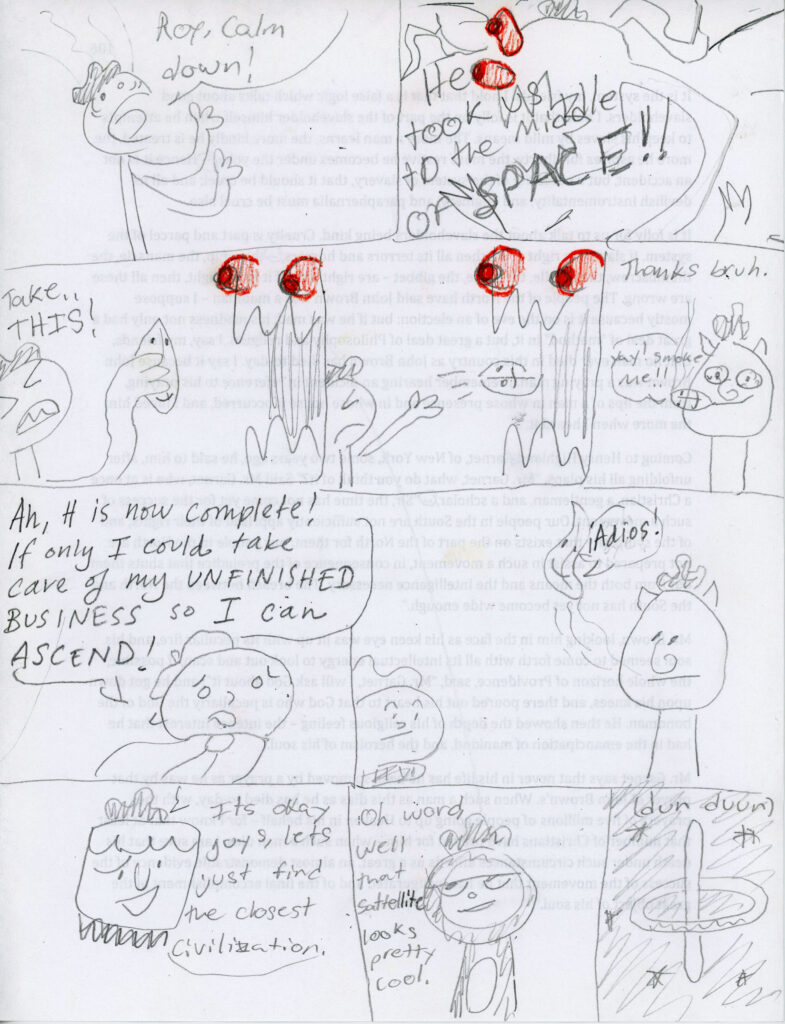 Roy, Calm
down!
He
took us
to the middle
OF
SPACE!
Take..
THIS!
Thanks bruh.
yay! Smoke
me!!
Ah, it is now complete!
If only I could take
care of my UNFINISHED
BUSINESS so I can
ASCEND!
¡Adios!
its okay
guys, lets
just find
the closest
civilization.
Oh word,
well
that
sattellite
looks
pretty
cool.
(dun duun)